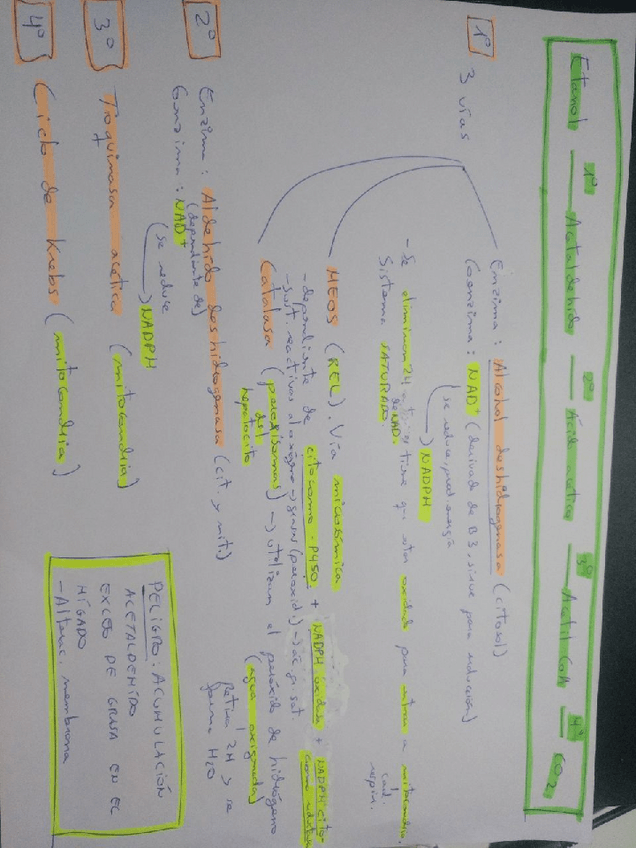 Etanol — 1º — Acetaldehído — 2º — Ácido acético — 3º — Acetil CoA — 4º — CO2
1º 3 vías
Enzima: Alcohol deshidrogenasa (citosol)
Coenzima: NAD+ (derivado de B3, sirve para reducción)
(se reduce, prod energía
→ NADPH
- Se eliminan 24 que estar oxidado para entrar a mitocondria.
de NAD.
Sistema SATURADO.
cad.
respir.
MEOS (REL). Vía microsómica
- dependiente de citocromo-P450 + NADPH oxidasa + NADPH cito-
- sust. reactivas al oxígeno → (peroxid)
Catalasa (peroxisomas) → utilizan el peróxido de hidrógeno
del
hepatocito
(agua oxigenada)
Retira 2H y se
forma H2O
2º Enzima: Aldehído deshidrogenasa (cit. y mit.)
(dependiente de)
Coenzima: NAD+
(se reduce
→ NADPH
3º Tioquinasa acética (mitocondria)
+
4º Ciclo de Krebs (mitocondria)
PELIGRO: ACUMULACIÓN
ACETALDEHIDO
EXCESO DE GRASA EN EL
HÍGADO
- Alterac. membrana